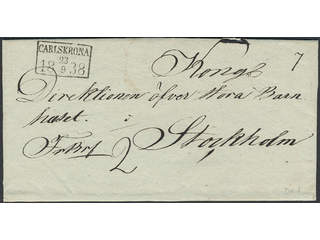 CARLSKRONA
23
18 9 38
7
Kongl
Direktionen öfver Stora Barn
huset. i
Stockholm
FrBrf 2